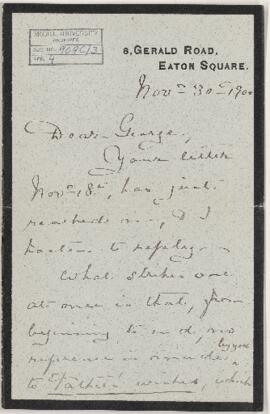 McGILL UNIVERSITY
ARCHIVES
ACC. NO. 909C/3
REF. 4
8, GERALD ROAD,
EATON SQUARE.
Nov. 30th 190
Dear George,
Your letter
Nov. 18th, has just
reached me, & I
hasten to reply
What strikes one
at once is that, from
beginning to end, no
by you
reference is made
to Father's wishes, which